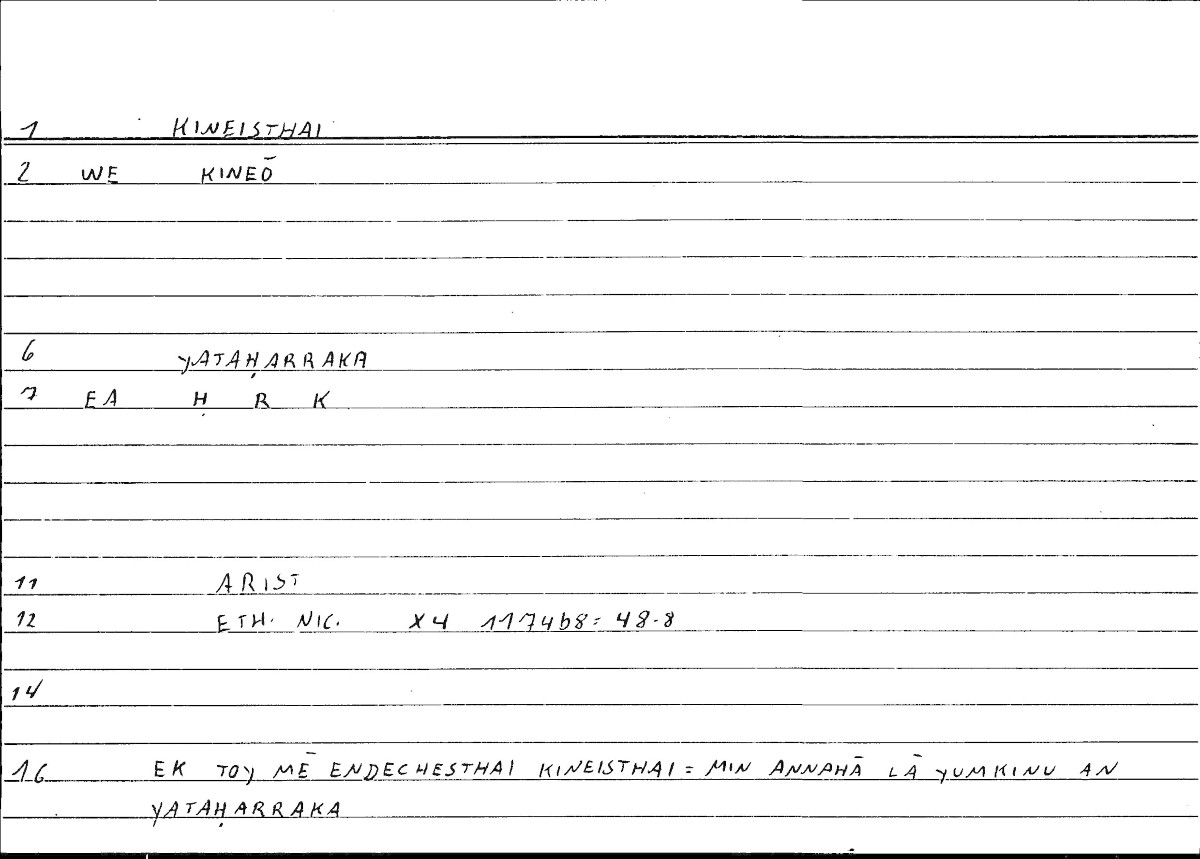 1 KINEISTHAI
2 WE KINEŌ
6 YATAḤARRAKA
7 EA Ḥ R K
11 ARIST
12 ETH. NIC. X4 1174b8= 48.8
14
16 EK TOY MĒ ENDECHESTHAI KINEISTHAI = MIN ANNAHĀ LĀ YUMKINU AN
YATAḤARRAKA